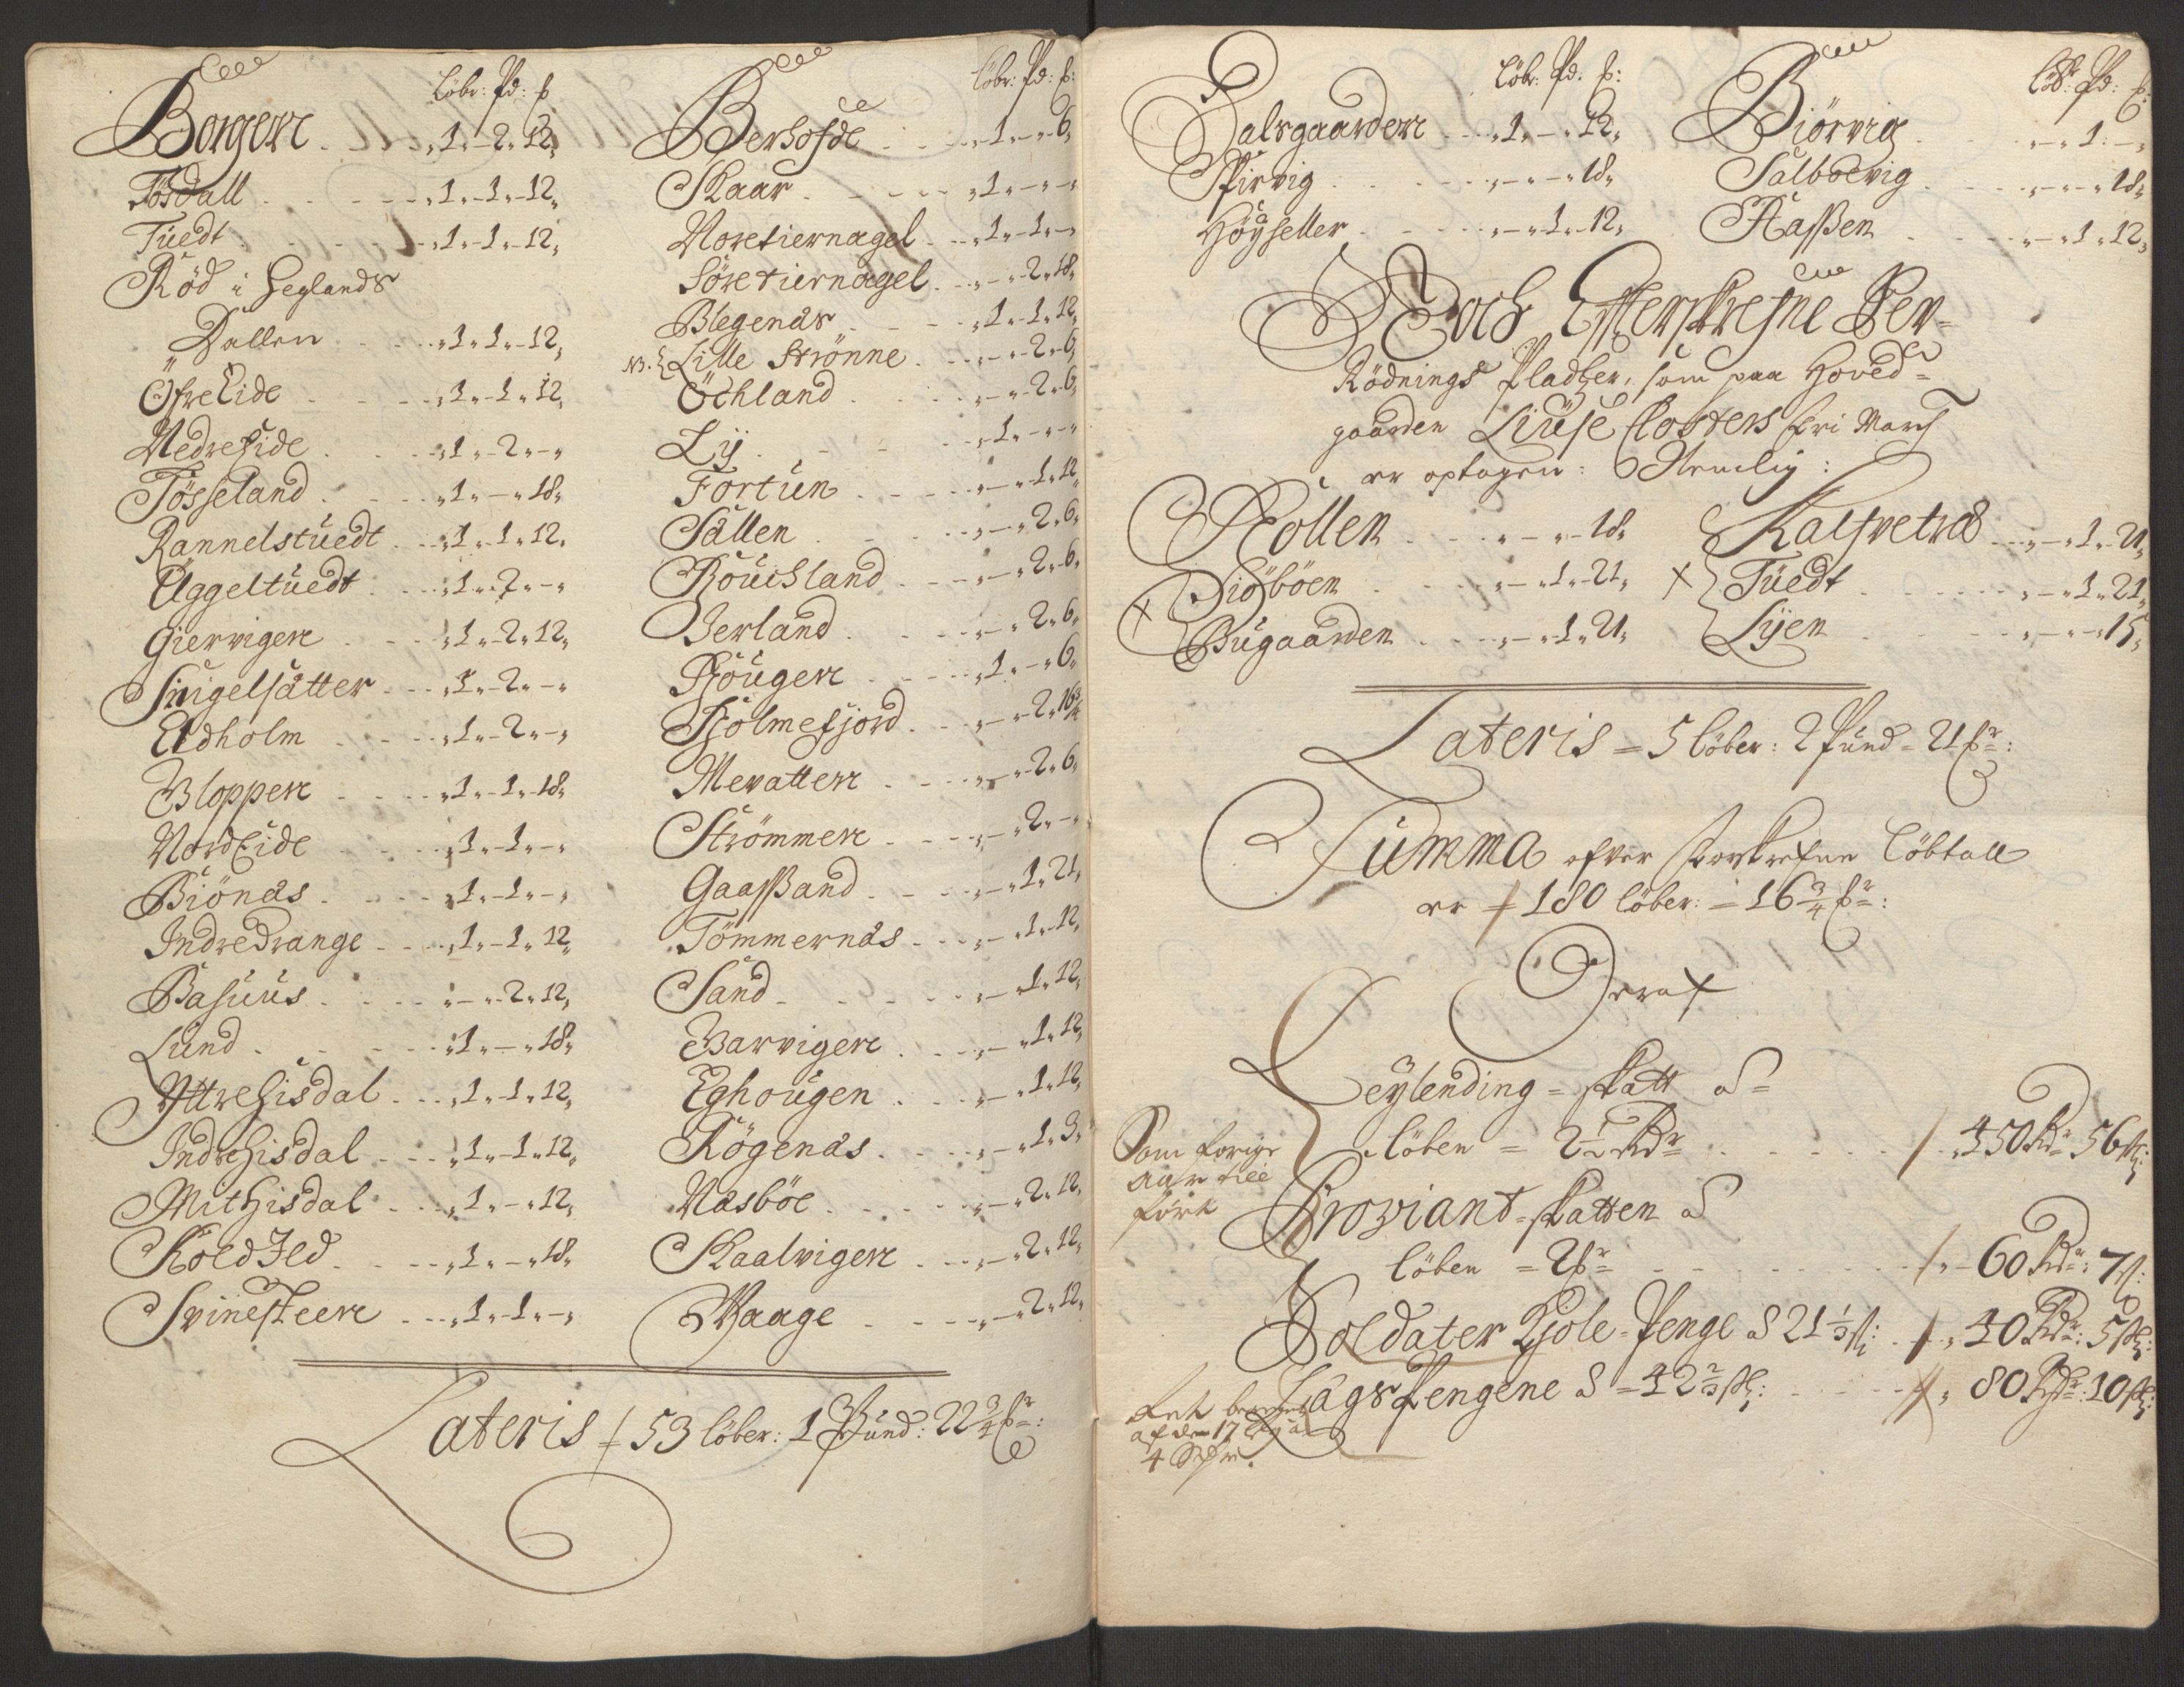 Löbr: Pd: ƀ
Borgere . . . „1„-2„12„
Tösdall . . . „1„-1„-12„
Tuedt . . . „1„-1„-12„
Röd i Heglands
Dallen . . . „1„1„-12„
ÖfreEide . . . „1„-1„12„
NedreEide . . . „1„-2„-„
Tösseland . . . „1„-„18„
Rannelstuedt . . „1„-1„12„
Uggeltuedt . . „1„-2„-„
Giervigere . . . „1„-2„12„
Snigelsätter . . . „1„-2„-„
Eldholm . . . „1„-2„-„
Bloppere . . . „1„-1„18„
NordEide . . . „1„-1„-„
Biönas . . . „1„-1„-„
IndreDrange . . . „1„-1„12„
Basuus . . . „-„2„12„
Lund . . . „1„-„18„
Yttrehisdal . . . „1„-1„12„
Indrehisdal . . . „1„-1„12„
Mithisdal . . . „1„-„12„
KoldIld . . . „1„-„18„
Svinesteere . . . „1„-1„-„
Löbr: Pd: ƀ:
Berhofde . . . „1„-„6„
Skaar . . . „1„-„-„
Noretiernagel . . . „1„-1„-„
Söretiernagel . . . „-„2„18„
Blegenäs . . . „1„-1„12„
NB. { Lille Strönne . . . „-„2„6„
Öchland . . . „-„2„6„
Lij . . . „1„-„-„
Fortun . . . „-„1„12„
Sällen . . . „-„2„6„
Rouchland . . . „-„2„6„
Berland . . . „-„2„6„
Hougere . . . „1„-„6„
Holmefjord . . . „-„2„16¾
Mevattere . . . „-„2„6„
Strömmere . . . „-„2„-„
Gaassand . . . „-„1„21„
Tömmernäs . . . „-„1„12„
Sand . . . „-„1„12„
Barvigere . . . „-„1„12„
Eghougen . . . „-„1„12„
Rögenäs . . . „-„1„3„
Näsböe . . . „-„2„12„
Skaalvigere . . . „-„2„12„
Waage . . . „-„2„12„
Lateris = 53 löber: 1 Pund: 22¾ ƀr:
Löbr: Pd. ƀ:
Dalsgaardere . . . „1„-„12„
Skirvig . . . „-„-„18„
Höyseller . . . „-„1„12„
Löbr: Pd: ƀ:
Biörvig . . . „-„1„-„
Sälböevig . . . „-„-„18„
Hassen . . . „-„1„12„
Noch Efterskrefne Ber-
Rödnings Pladtzer, som paa Hoved-
gaarden Liuse Closters fri March
er optagen: Nemlig:
Hollen . . . „-„-„18„
Siöböen . . . „-„1„21„
Bugaarden . . . „-„1„21„
Kalfvetræ . . . „-„1„21„
Tuedt . . . „-„1„21„
Lijen . . . „-„-„15„
Lateris = 5 löber: 2 Pund = 21 ƀr:
Summa ofver forskrefne Löbtall
er = 180 löber: - 16¾ ƀr:
Deraf
Leylending = skatt a
löben = 2½ Rdr . . . 450 Rdr 56 sk:
Som forige
aar till
fört
Proviant-skatten a
löben = 2 ƀr . . . 60 Rdr: 7 sk:
Soldater Kjole-Penge a 21⅓ sk: . . 40 Rdr: 5 sk:
Lägs Pengene a = 42⅔ sk: . . . 80 Rdr: 10 sk:
af den 17
4